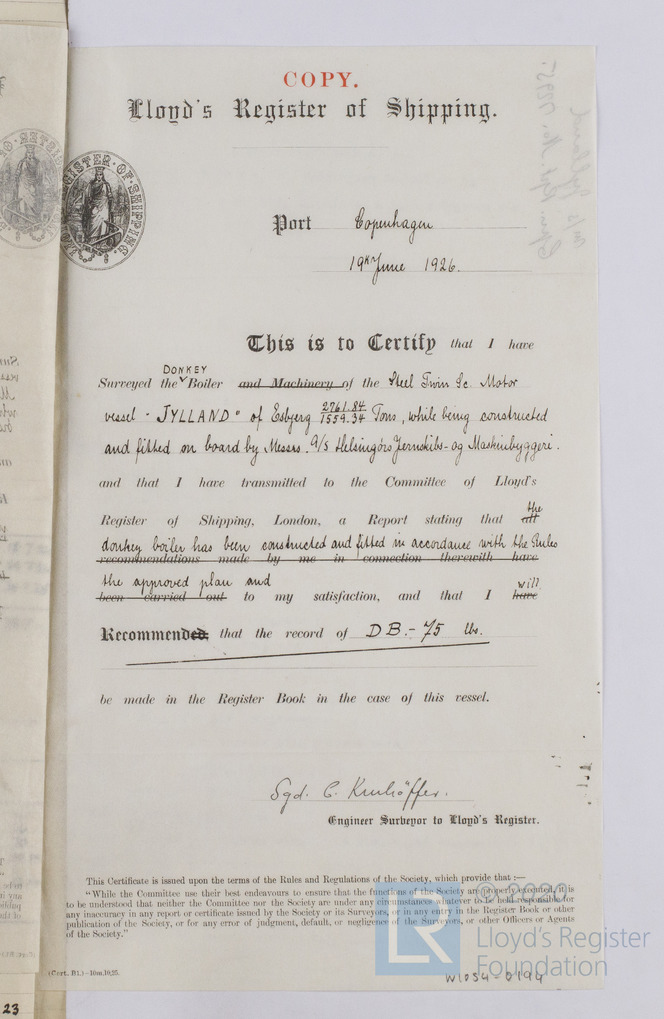 COPY.
Lloyd's Register of Shipping.
LLOYD'S REGISTER OF SHIPPING
Port Copenhagen
19th June 1926.
This is to Certify that I have
DONKEY
Surveyed the Boiler and Machinery of the Steel Twin Sc. Motor
vessel "JYLLAND" of Esbjerg 2761.84/1559.34 Tons, while being constructed
and fitted on board by Messrs. A/S Helsingörs Jernskibs- og Maskinbyggeri.
and that I have transmitted to the Committee of Lloyd's
the
Register of Shipping, London, a Report stating that all
donkey boiler has been constructed and fitted in accordance with the Rules
recommendations made by me in connection therewith have
the approved plan and will
been carried out to my satisfaction, and that I have
Recommended that the record of DB.- 75 lbs.
be made in the Register Book in the case of this vessel.
Sgd. C.
Engineer Surveyor to Lloyd's Register.
This Certificate is issued upon the terms of the Rules and Regulations of the Society, which provide that :—
"While the Committee use their best endeavours to ensure that the functions of the Society are properly executed, it is
to be understood that neither the Committee nor the Society are under any circumstance whatever to be held responsible for
any inaccuracy in any report or certificate issued by the Society or its Surveyors, or in any entry in the Register Book or other
publication of the Society, or for any error of judgment, default, or negligence of the Surveyors, or other Officers or Agents
of the Society."
(Cert. B1.)—10m,10,25.
LR
Lloyd's Register
Foundation
W1054-0194
23